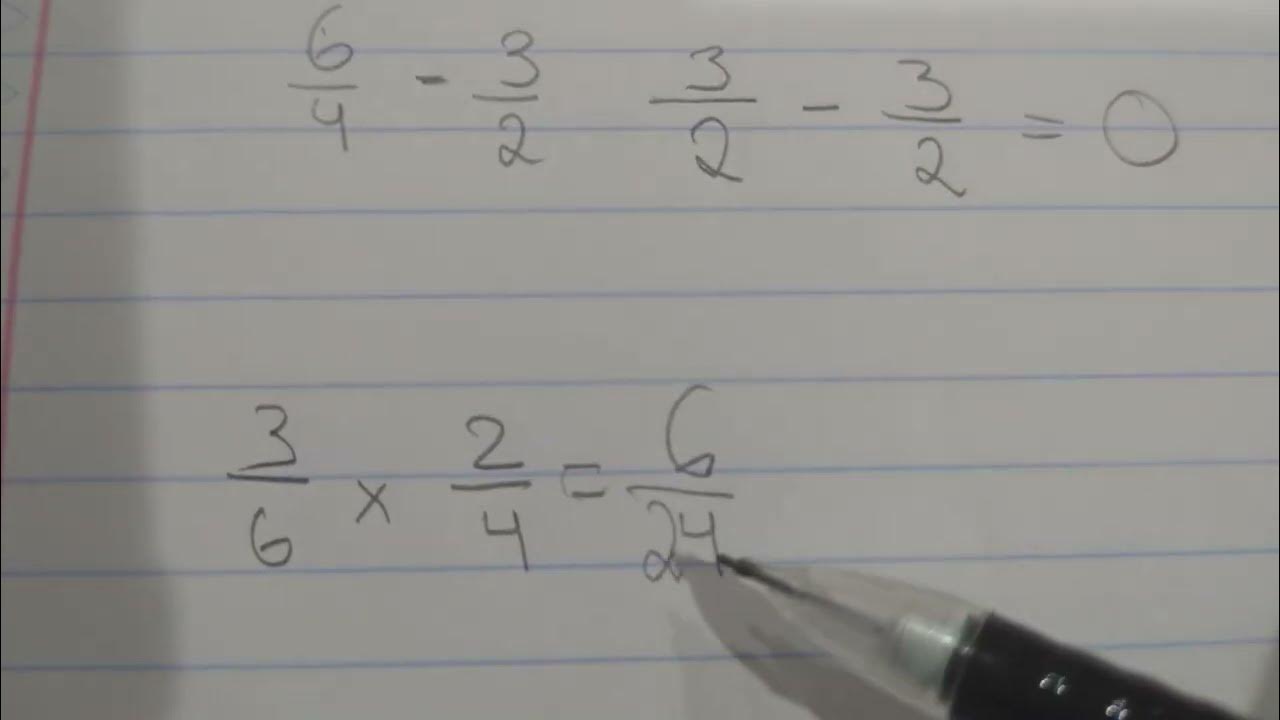 6/4 - 3/2 3/2 - 3/2 = 0
3/6 x 2/4 = 6/24